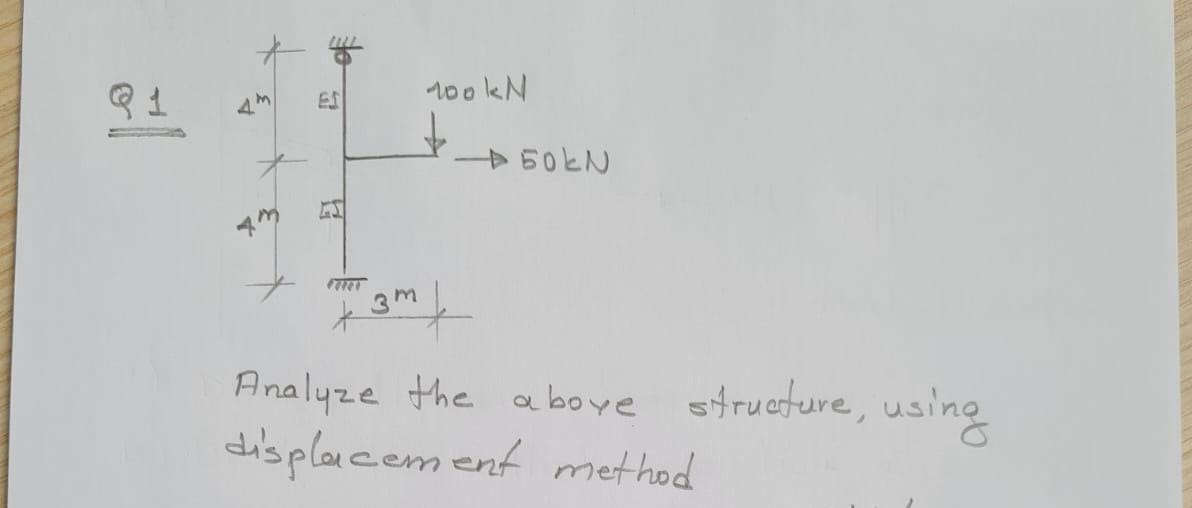 Q1
4m
EI
100kN
50kN
4m
EI
3m
Analyze the above structure, using
displacement method